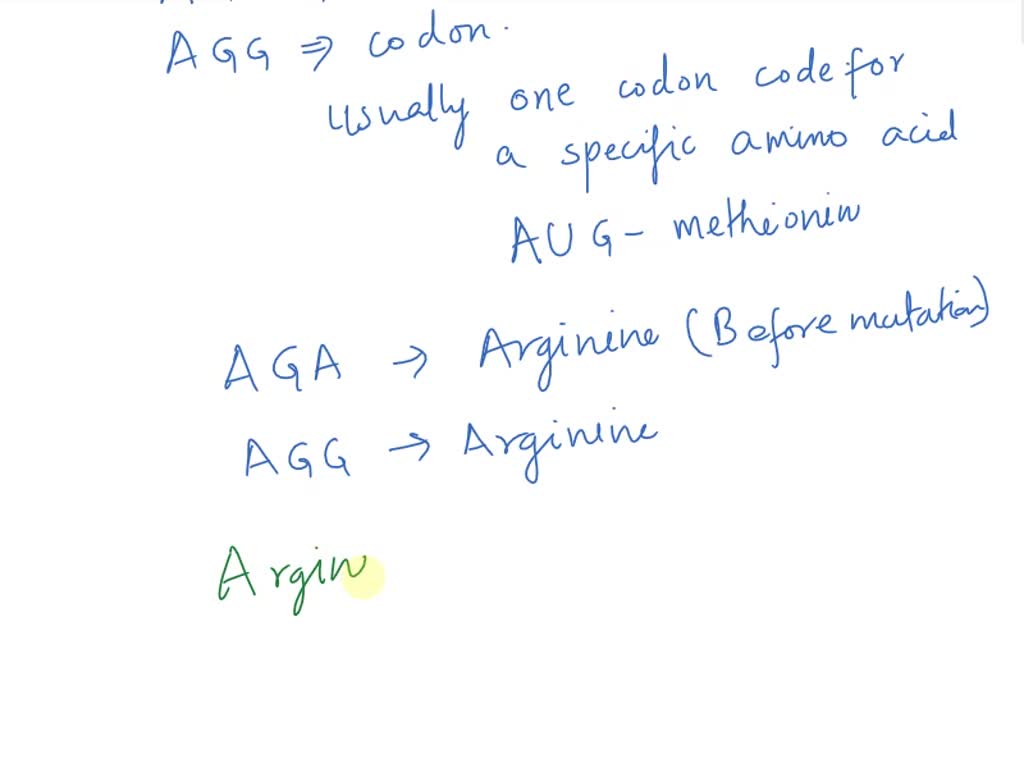 AGG ⇒ codon.
usually one codon code for
a specific amino acid
AUG - methionin
AGA → Arginine (Before mutation)
AGG → Arginine
Argin